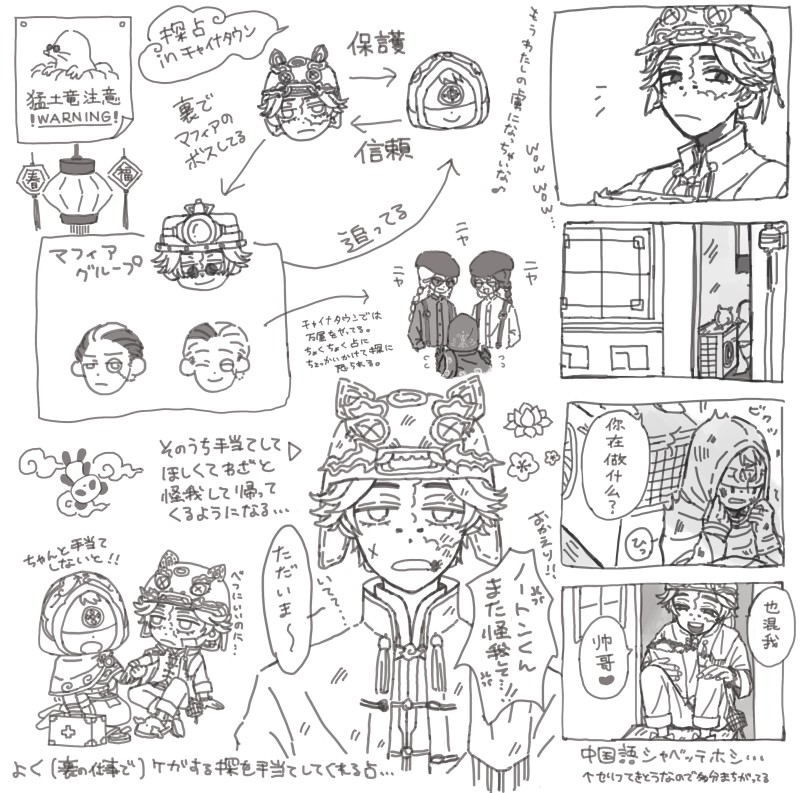 探占
inチャイナタウン
猛土竜注意
!WARNING!
春
福
裏で
マフィアの
ボスしてる
保護
信頼
追ってる
マフィア
グループ
ニャ
ニャ
ニャ
チャイナタウンでは
万屋をやってる。
ちょくちょく占に
ちょっかいかけて探に
怒られる。
もうわたしの虜になっちゃいな
wow wow...
你在做什么?
ビクッ
ひっ
也混我
帅哥
中国語シャベッテホシ...
↑せりフてきとうなので多分まちがってる
そのうち手当てして
ほしくてわざと
怪我して帰って
くるようになる...
ちゃんと手当て
しないと!!
べつにいいのに...
ただいま〜
いてて...
おかえり!!
ノートンくん
また怪我して...!!
よく(裏の仕事で)ケガする探を手当てしてくれる占...